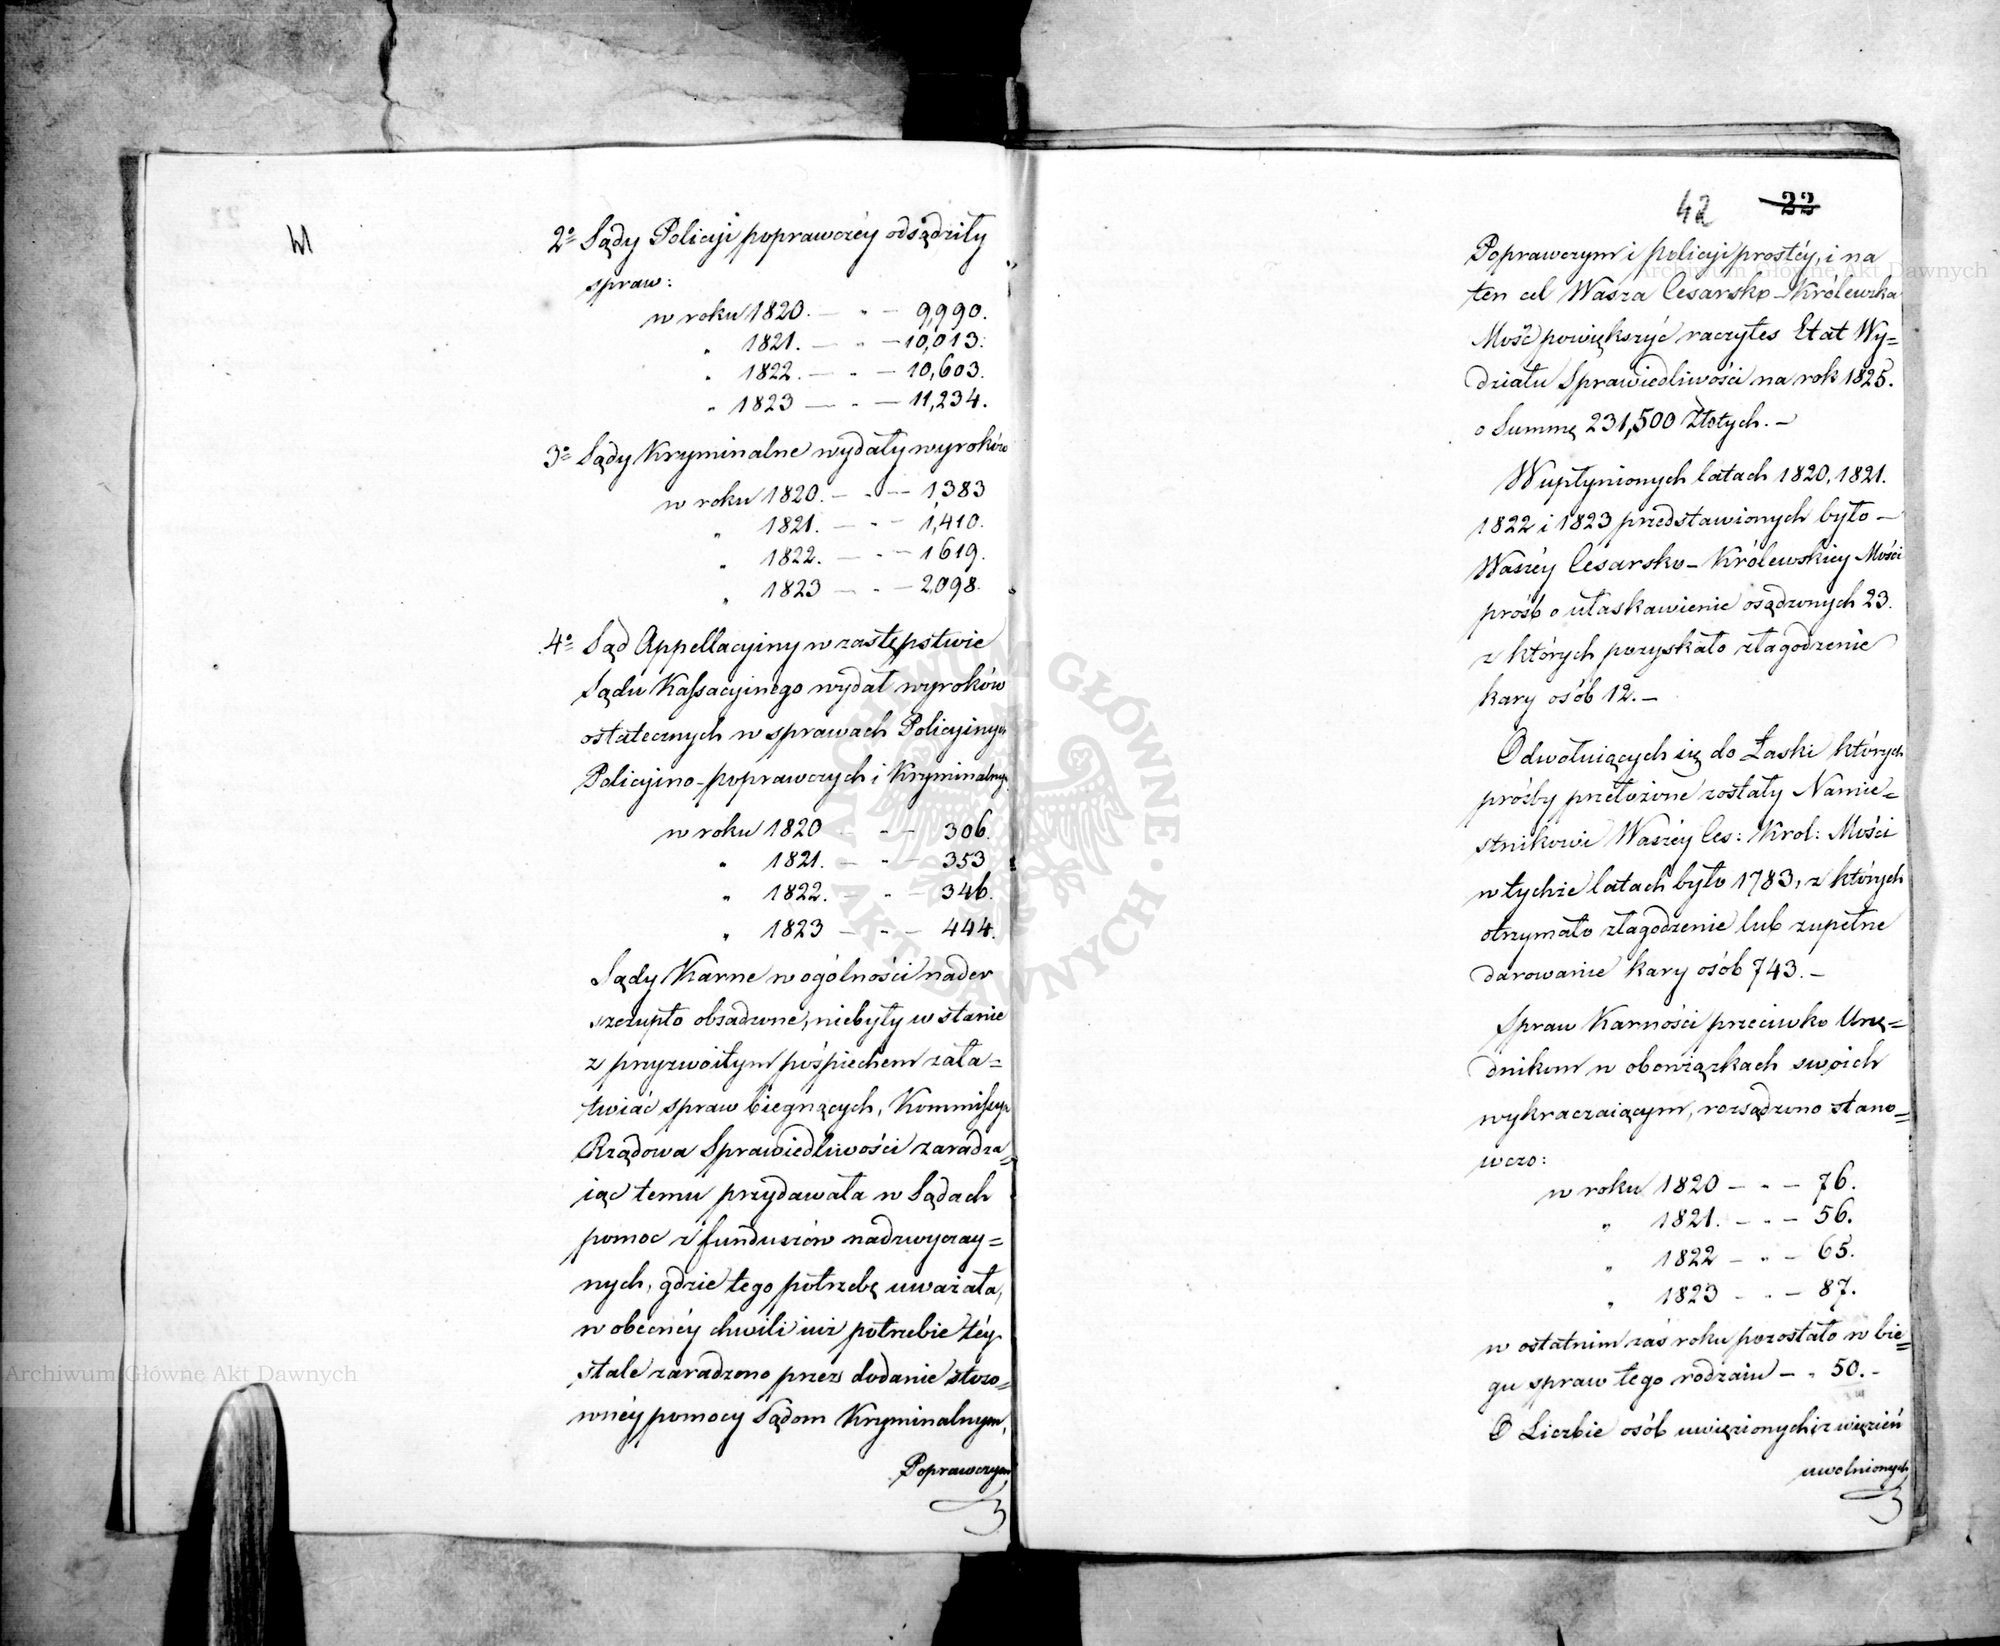 2° Sądy Policyi poprawczéy odsądziły
spraw:
w roku 1820. — „ — 9,990.
„ 1821. — „ — 10,013.
„ 1822. — „ — 10,603.
„ 1823 — „ — 11,234.
3° Sądy Kryminalne wydały wyroków
w roku 1820. — „ — 1383
„ 1821. — „ — 1,410.
„ 1822. — „ — 1619.
„ 1823 — „ — 2098.
4° Sąd Appellacyiny w zastępstwie
Sądu Kassacyinego wydał wyroków
ostatecznych w sprawach Policyinych
Policyino-poprawczych i Kryminalnych
w roku 1820 — „ — 306.
„ 1821. — „ — 353
„ 1822. — „ — 346.
„ 1823 — „ — 444.
Sądy Karne w ogólności nader
szczupło obsadzone, niebyły w stanie
z przyzwoitym pośpiechem zała=
twiać spraw biegnących, Kommissya
Rządowa Sprawiedliwości zaradza=
iąc temu przydawała w Sądach
pomoc z funduszów nadzwyczay=
nych, gdzie tego potrzebę uważała,
w obecnéy chwili iuż potrzebie téy
stale zaradzono przez dodanie stoso=
wnéy pomocy Sądom Kryminalnym,
Poprawczym
42 22
Poprawczym i policyi prostéy, i na
ten cel Wasza Cesarsko-Królewska
Mość powiększyć raczyłeś Etat Wy=
działu Sprawiedliwości na rok 1825.
o Summę 231,500 Złotych. —
W upłynionych latach 1820, 1821.
1822 i 1823 przedstawionych było —
Waszéy Cesarsko-Królewskiey Mości
próśb o ułaskawienie osądzonych 23.
z których pozyskało złagodzenie
kary osób 12. —
Odwołuiących się do Łaski których
prośby przełożone zostały Namie=
stnikowi Waszéy Ces: Krol: Mości
w tychże latach było 1783, z których
otrzymało złagodzenie lub zupełne
darowanie kary osób 743. —
Spraw Karności przeciwko Urzę=
dnikom w obowiązkach swoich
wykraczaiącym, rozsądzono stano=
wczo:
w roku 1820 — „ — 76.
„ 1821. — „ — 56.
„ 1822 — „ — 65.
„ 1823 — „ — 87.
w ostatnim zaś roku pozostało w bie=
gu spraw tego rodzaiu — „ 50. —
O Liczbie osób uwięzionych i z więzień
uwolnionych
Archiwum Główne Akt Dawnych
Archiwum Główne Akt Dawnych
ARCHIWUM GŁÓWNE AKT DAWNYCH